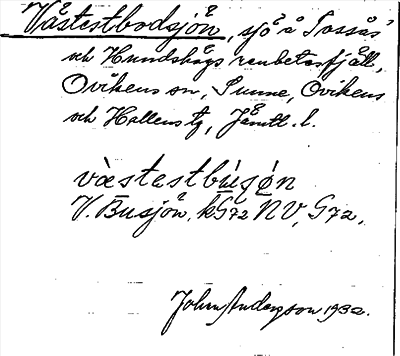 Västestbodsjön, sjö å Tossås
och Hundshögs renbetesfjäll,
Ovikens sn, Sunne, Ovikens
och Hallens tg, Jämtl. l.
V. Busjön, kG72 NV, G72.
John Anderson 1932.